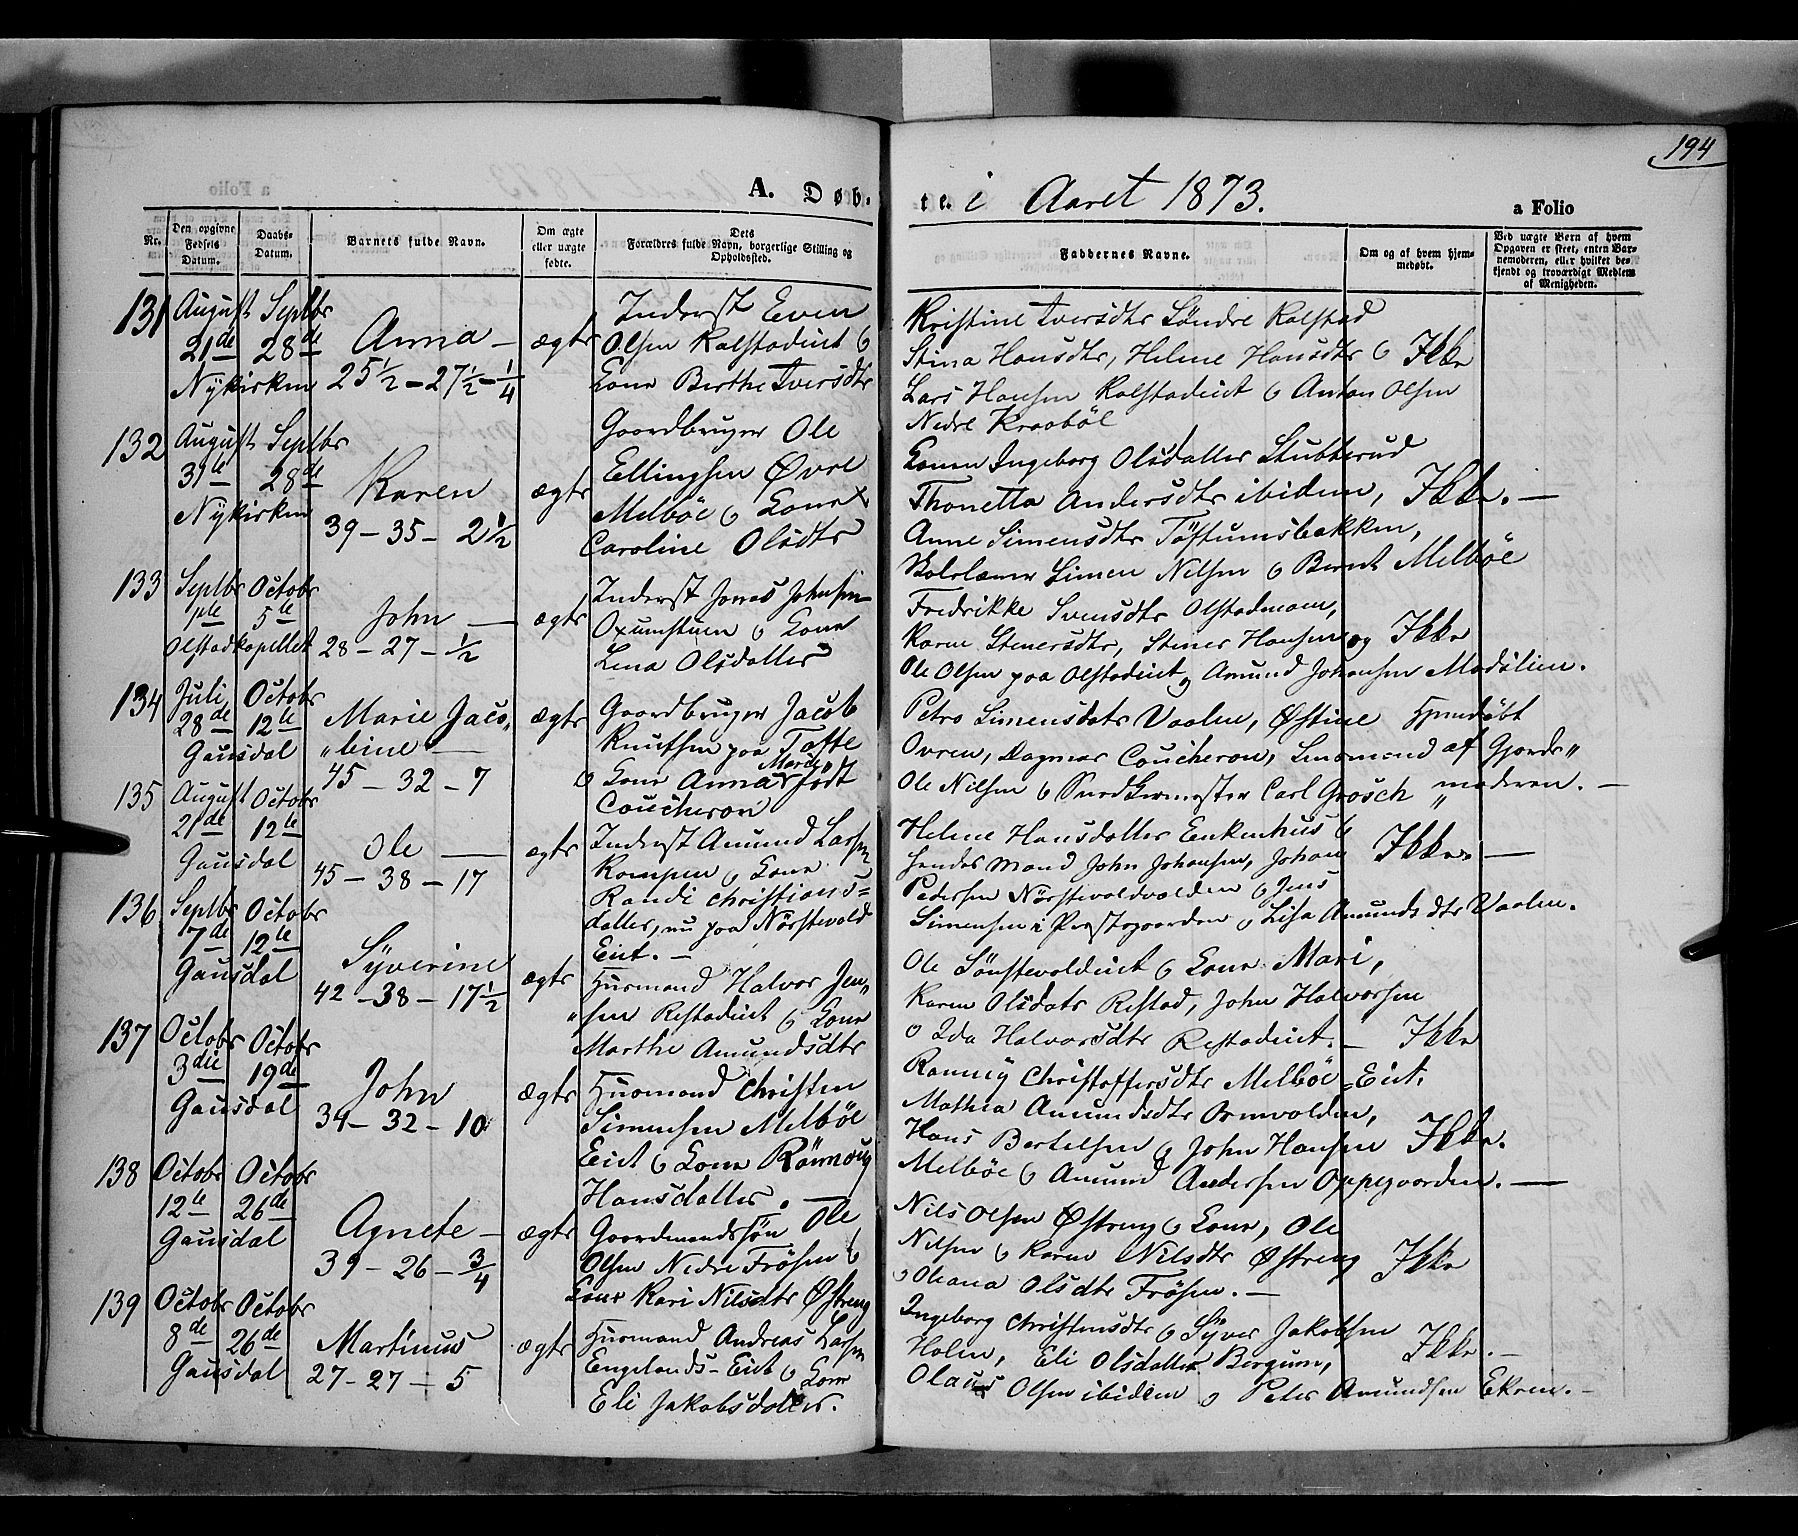 194
A. Døb-
te. i Aaret 1873.
a Folio
Nr.
Den opgivne Fødsels Datum.
Daabs-Datum.
Barnets fulde Navn.
Om ægte eller uægte fødte.
Dets Forældres fulde Navn, borgerlige Stilling og Opholdssted.
Faddernes Navne.
Om og af hvem hjemmedøbt.
Ved uægte Børn af hvem Opgaven er skeet, enten Barnemoderen, eller hvilket bekjendt og troværdigt Medlem af Menigheden.
131 August Septbr
21de 28de
Nykirken
Anna —
25½ – 27½ – ¼
ægte
Inderst Even
Olsen Kalstadeiet &
Kone Berthe Iversdtr
Kristine Iversdtr Søndre Kalstad
Stina Hansdtr, Helene Hansdtr &
Lars Hansen Kalstadeiet & Anton Olsen
Nedre Kraabøl
Ikke
132 August Septbr
31te 28de
Nykirken
Karen
39 – 35 – 2½
ægte
Gaardbruger Ole
Ellingsen Øvre
Melböe & Kone
Caroline Olsdtr
Konen Ingeborg Olsdatter Stubberud
Thonetta Andersdtr ibidem,
Anne Simensdtr Töftumsbakken,
Skolelærer Simen Nilsen & Bernt Melböe
Ikke. —
133 Septbr Octobr
1ste 5te
Olstadkapellet
John —
28 – 27 – ½
ægte
Inderst Jonas Johnsen
Kone
Lena Olsdatter
Fredrikke Svensdtr Olstadmoen,
Karen Stenersdtr, Stener Hansen og
Ole Olsen paa Olstadeiet & Amund Johansen Modslien.
Ikke
134 Juli Octobr
28de 12te
Gausdal
Marie Jaco„
„bine —
45 – 32 – 7
ægte
Gaardbruger Jacob
Knutsen paa Tofte
& Kone Anna Marie født
Coucheron
Petra Simensdatr Vaalen, Østine
Ovren, Dagmar Coucheron, Lensmand
Ole Nilsen & Carl Grosch
Hjemdøbt
af Gjorde„
„moderen. —
135 August Octobr
21de 12te
Gausdal
Ole —
45 – 38 – 17
ægte
Inderst Amund Larsen
Kampen & Kone
Randi Christians=
datter, nu paa Nörstevold
Eiet. —
Helene Hansdatter Enkenhus &
hendes Mand John Johansen, Johan
Pedersen Nörstevoldvolden & Jens
Simensen i Præstegaarden & Lisa Amundsdtr Vaalen.
Ikke. —
136 Septbr Octobr
7de 12te
Gausdal
Syverine
42 – 38 – 17½
ægte
Husmand Halvor Jen„
„sen Restadeiet & Kone
Marthe Amundsdtr
Ole Sönstevoldeiet & Kone Mari,
Karen Olsdatr Restad, John Halvorsen
& Ida Halvorsdtr Restadeiet. —
Ikke
137 Octobr Octobr
3die 19de
Gausdal
John
34 – 32 – 10
ægte
Husmand Christen
Simensen Melböe
Eiet & Kone Rönnoug
Hansdatter. —
Ronnoug Christoffersdtr Melböe-Eiet.
Mathea Amundsdtr Ormvolden,
Hans Bertelsen & John Hansen
Melböe & Amund Andersen Oppegaarden. —
Ikke.
138 Octobr Octobr
12te 26de
Gausdal
Agnete —
39 – 26 – ¾
ægte
Gaardmandssön Ole
Olsen Nedre Frösen &
Kone Kari Nilsdtr Østreng
Nils Olsen Østreng & Kone, Ole
Nilsen & Karen Nilsdtr Østreng
& Oleana Olsdtr Frösen. —
Ikke
139 Octobr Octobr
8de 26de
Gausdal
Martinus
27 – 27 – 5
ægte
Husmand Andreas Larsen
Engelands-Eiet & Kone
Eli Jakobsdatter.
Ingeborg Christensdtr & Syver Jakobsen
Holen, Eli Olsdatter Bergum,
Olaus Olsen ibidem & Peter Amundsen Ekren. —
Ikke. —